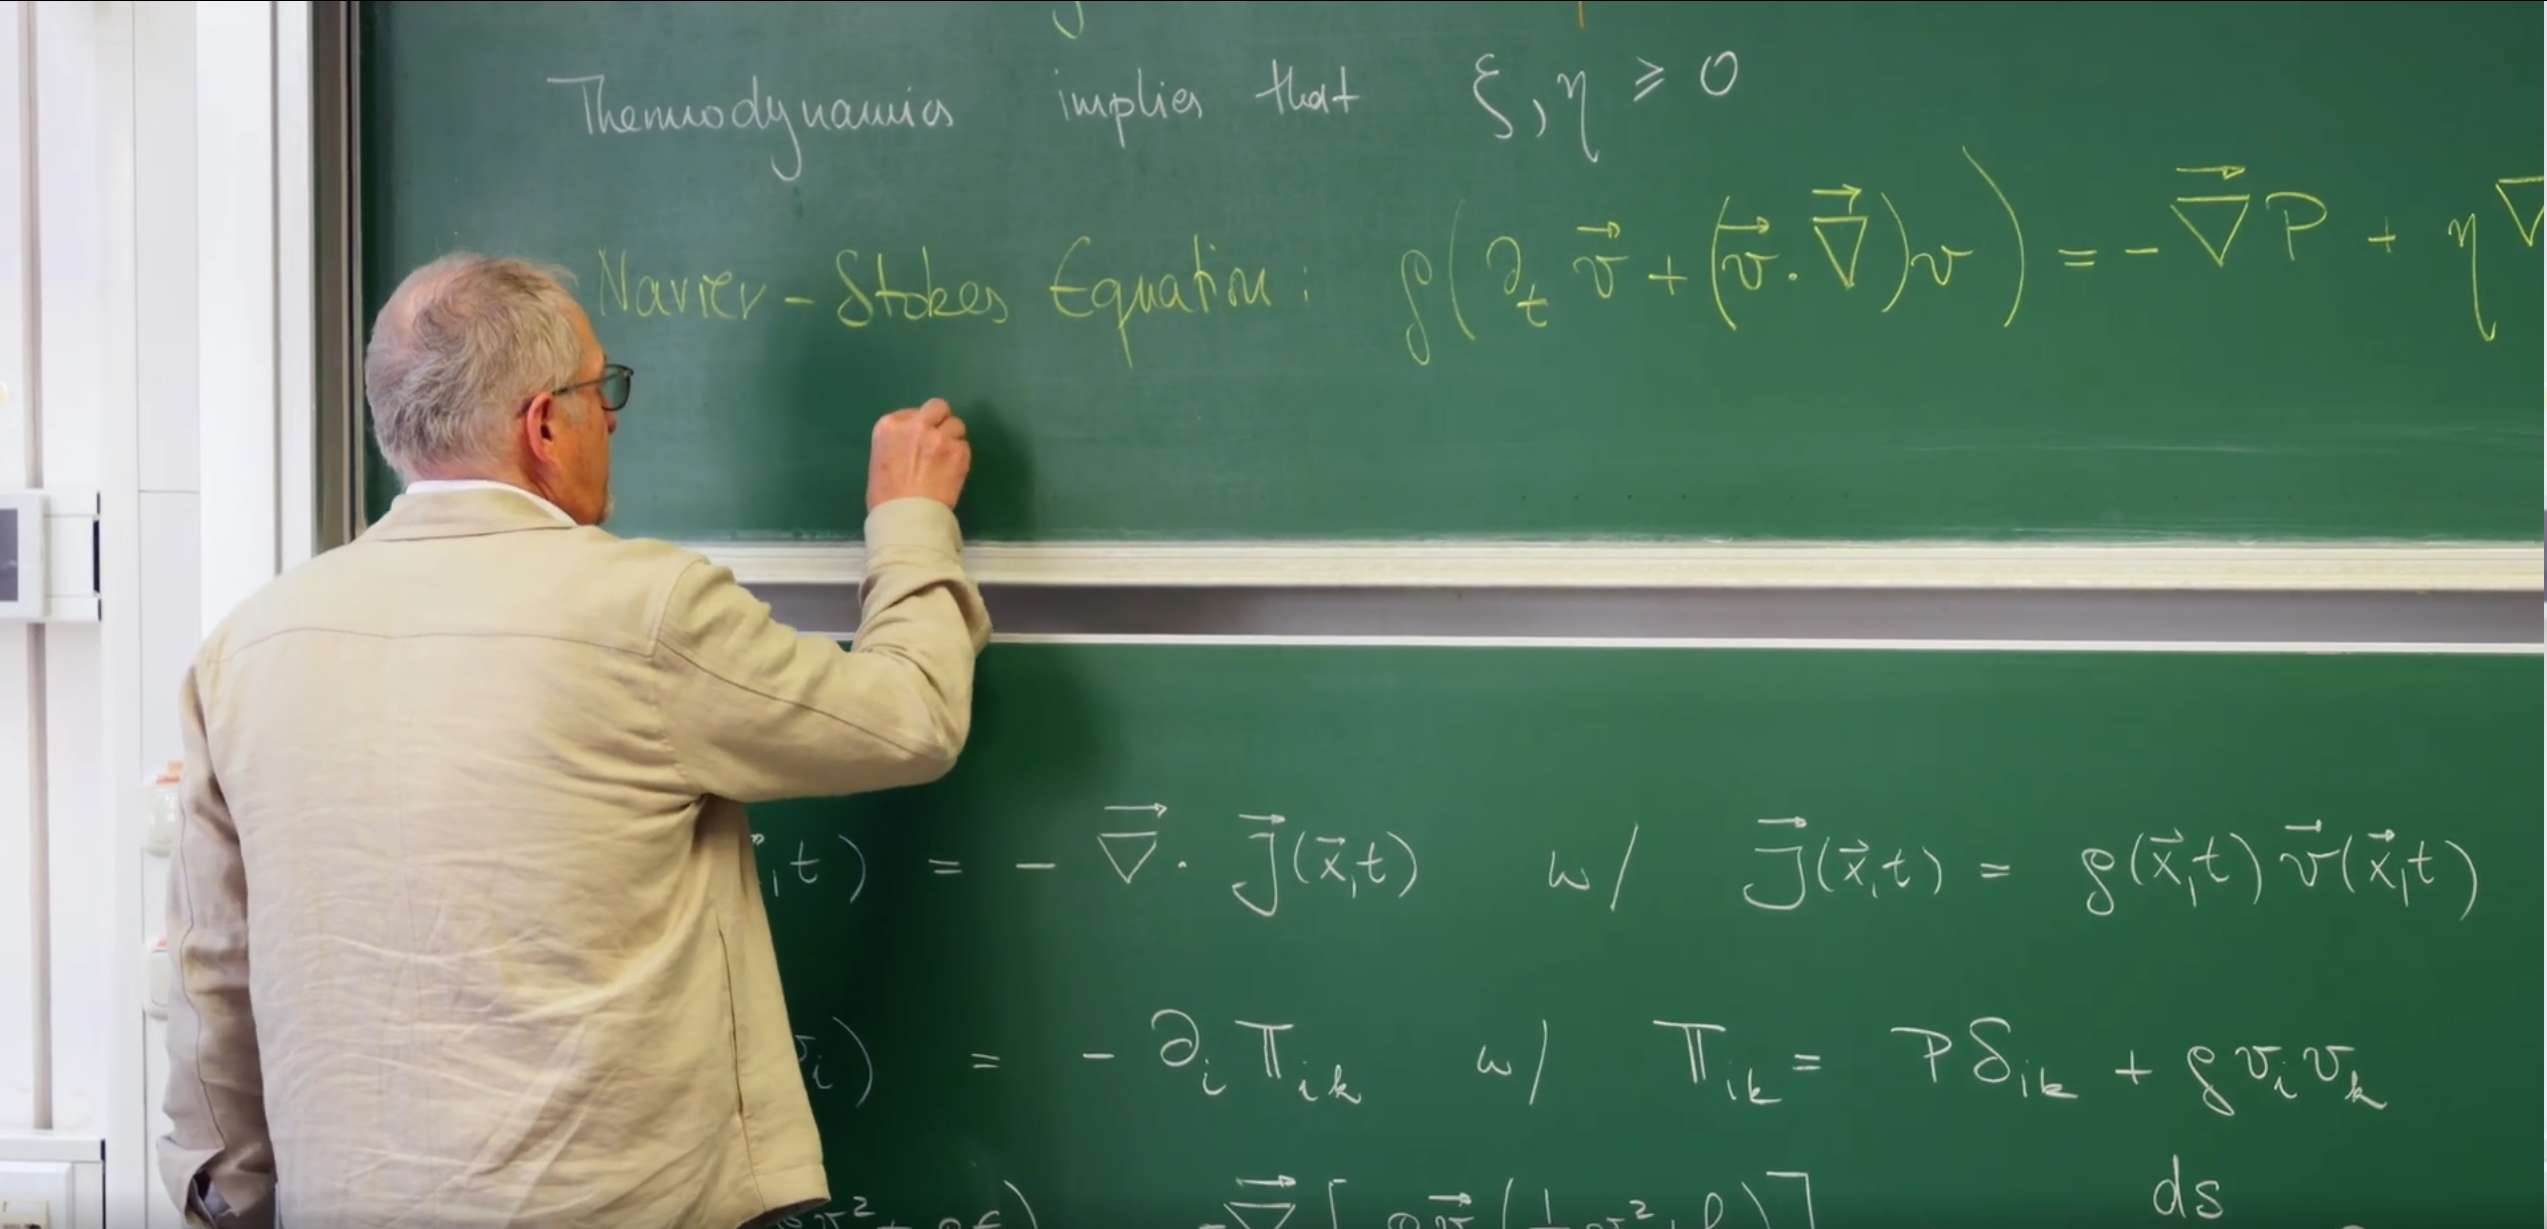 Thermodynamics implies that ξ, η ⩾ 0
Navier-Stokes Equation: ρ(∂ₜ v⃗ + (v⃗ · ∇⃗)v) = - ∇⃗P + η∇
,t) = - ∇⃗ · J⃗(x⃗,t) w/ J⃗(x⃗,t) = ρ(x⃗,t) v⃗(x⃗,t)
vᵢ) = - ∂ᵢ Πᵢₖ w/ Πᵢₖ = Pδᵢₖ + ρvᵢvₖ
ds